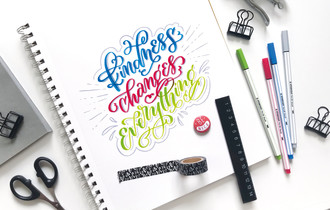 kindness
changes
Everything